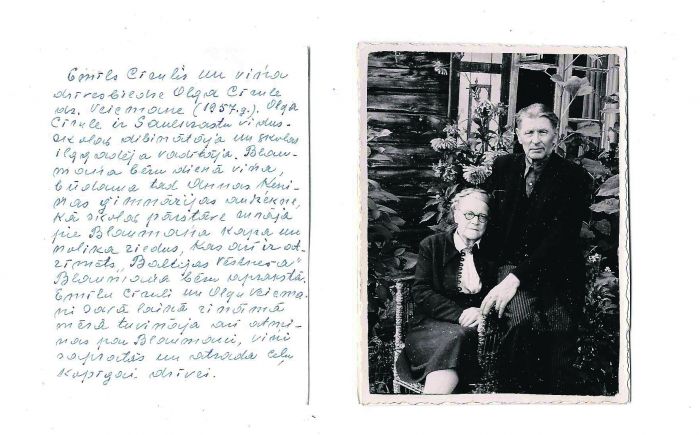 Emīls Cīrulis un viņa
dzīvesbiedre Olga Cīrule
dz. Veicmane (1957.g.). Olga
Cīrule ir Saulkrastu vidus-
skolas dibinātāja un skolas
ilggadēja vadītāja. Blau-
maņa bēru dienā viņa,
būdama tad Annas Ķeni-
ņas ģimnāzijas audzēkne,
kā skolas pārstāve runāja
pie Blaumaņa kapa un
nolika ziedus, kas arī ir at-
zīmēts „Baltijas Vēstneša”
Blaumaņa bēru aprakstā.
Emīlu Cīruli un Olgu Veicma-
ni savā laikā zināmā
mērā tuvināja arī atmi-
ņas par Blaumani, viņi
sapratās un atrada ceļu
kopīgai dzīvei.